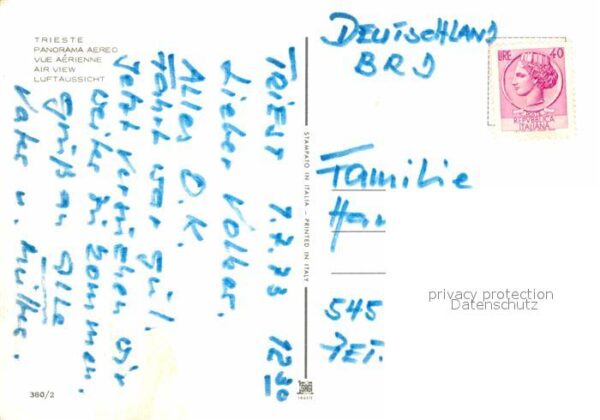 TRIESTE
PANORAMA AEREO
VUE AÉRIENNE
AIR VIEW
LUFTAUSSICHT
Triest 7.7.73 12 30
Lieber Volker,
Alles O.K.
Fahrt war gut.
Jetzt wir
weiter zu kommen.
Gruß an alle
Vater u.
380/2
STAMPATO IN ITALIA - PRINTED IN ITALY
DEUTSCHLAND
BRD
LIRE 40
POSTE
REPUBBLICA
ITALIANA
Familie
Har
545
privacy protection
Datenschutz